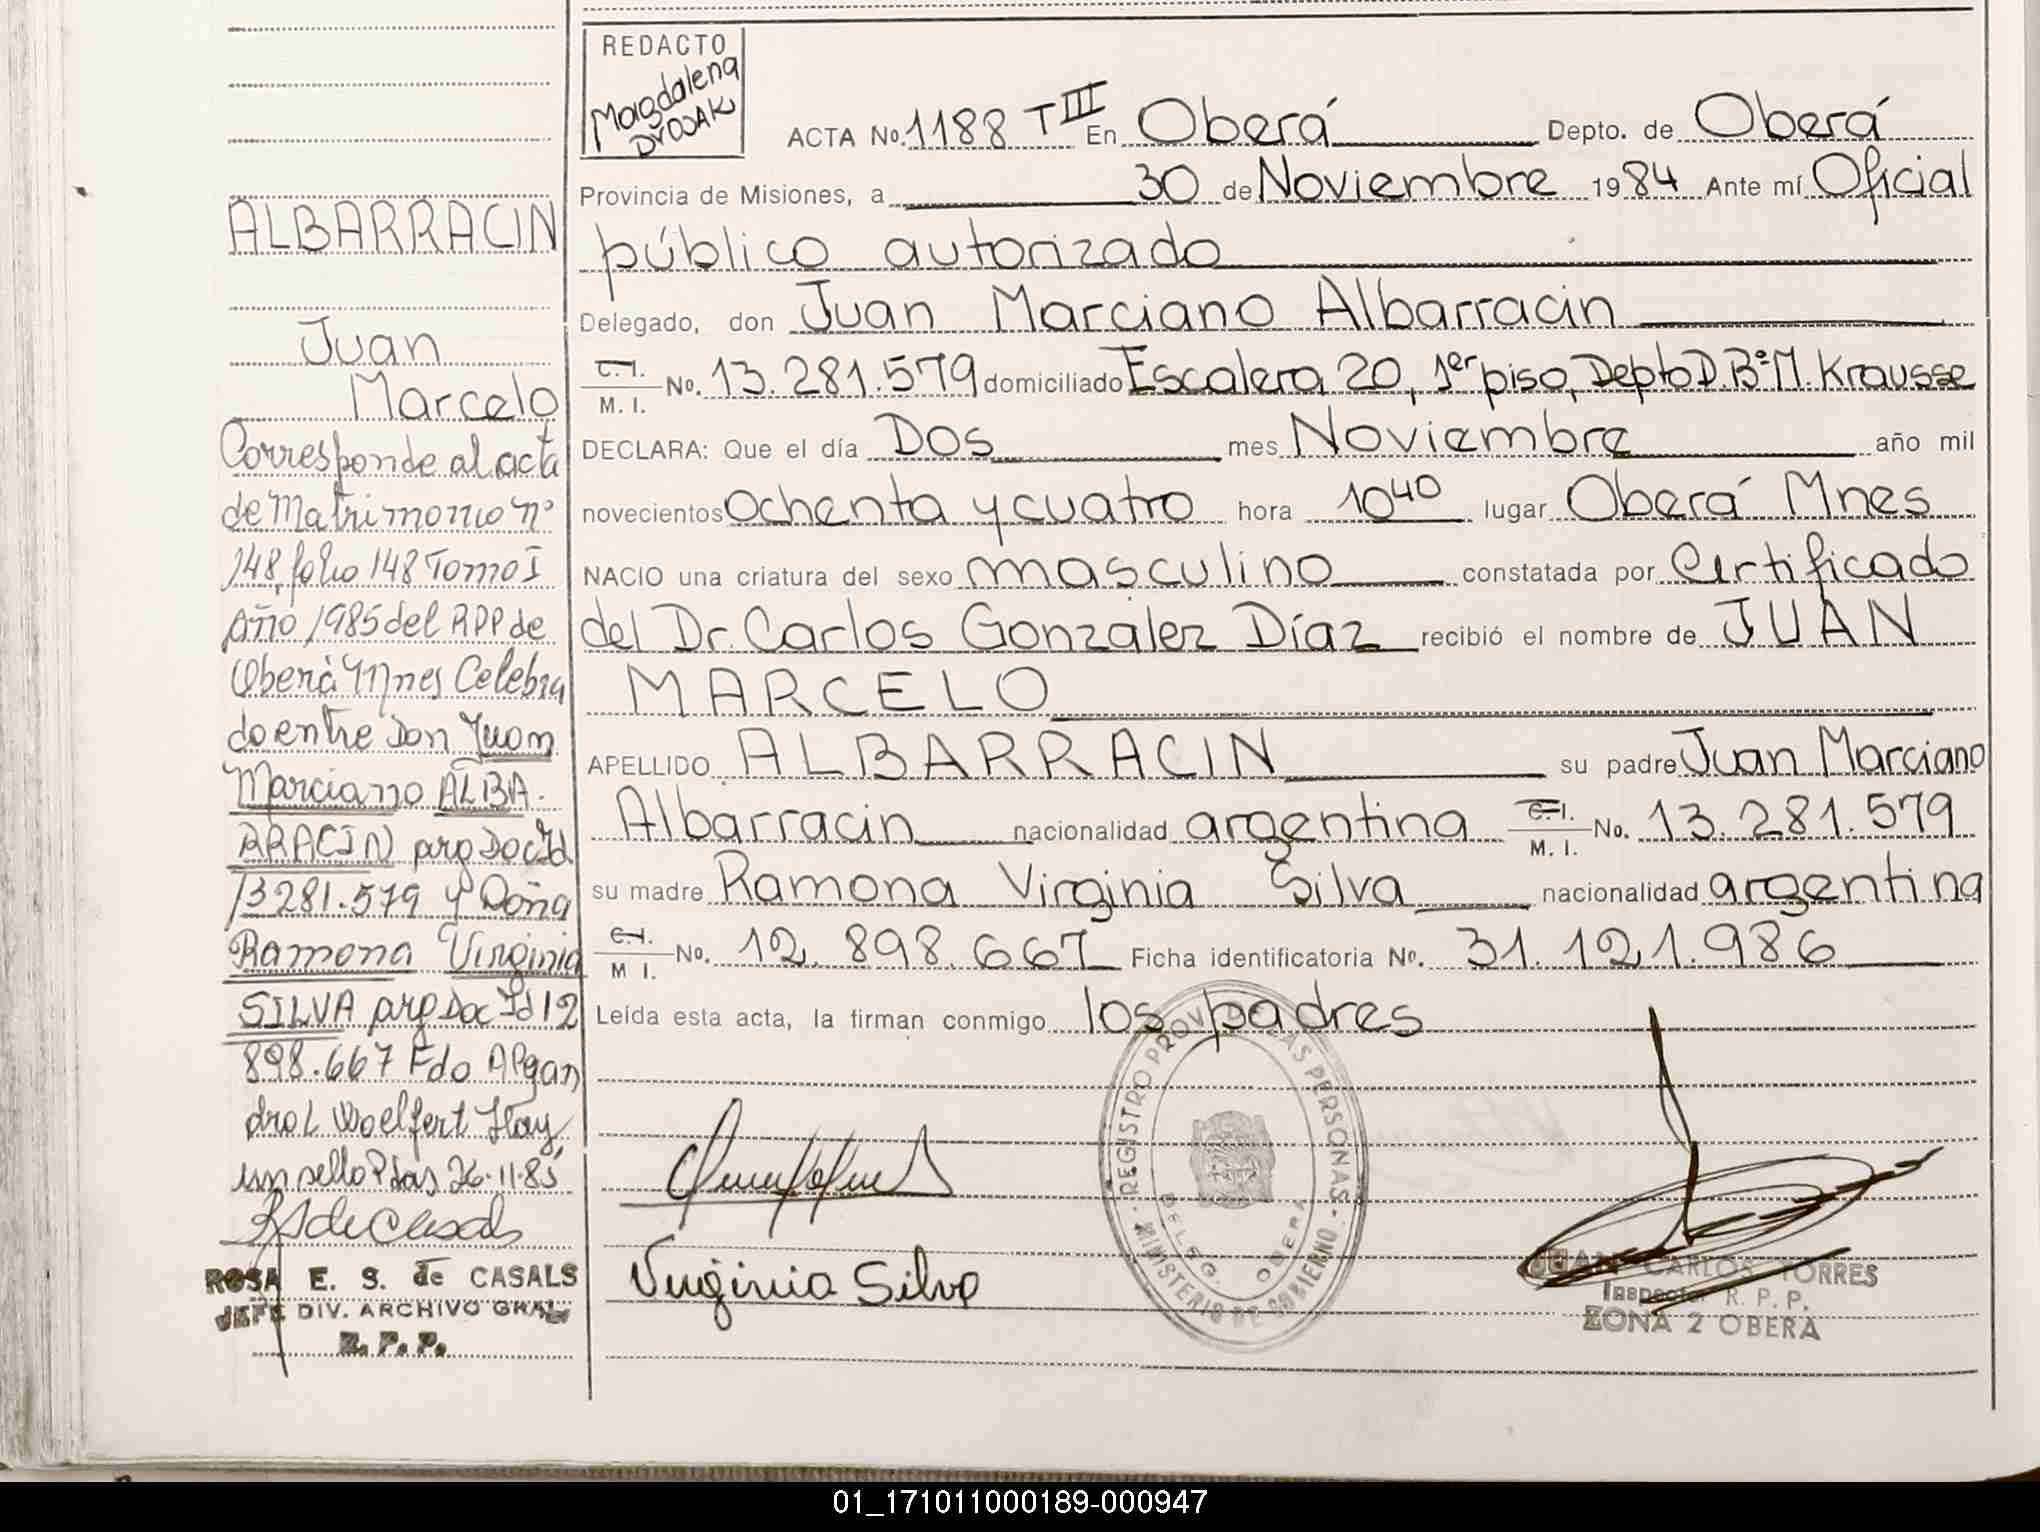 ALBARRACIN
Juan
Marcelo
Corresponde al acta
de Matrimonio nº
148 folio 148 Tomo I
Año 1985 del RPP de
Oberá Mnes Celebra
do entre Don Juan
Marciano ALBA-
RRACIN arg Doc Id
13281.579 y Doña
Ramona Virginia
SILVA arg Doc Id 12
898.667 Fdo
dro L Woelfert Hay
un sello Pdas 26-11-85
RS de Casals
ROSA E. S. de CASALS
JEFE DIV. ARCHIVO GRAL
R. P. P.
REDACTO
Magdalena
DVOJAK
ACTA No. 1188 T III En Oberá Depto. de Oberá
Provincia de Misiones, a 30 de Noviembre 1984 Ante mí Oficial
público autorizado
Delegado, don Juan Marciano Albarracin
C.I. M. I. No. 13.281.579 domiciliado Escalera 20, 1er piso, Depto D. Bº M. Krausse
DECLARA: Que el día Dos mes Noviembre año mil
novecientos Ochenta y cuatro hora 10 40 lugar Oberá Mnes
NACIO una criatura del sexo masculino constatada por Certificado
del Dr. Carlos Gonzalez Díaz recibió el nombre de JUAN
MARCELO
APELLIDO ALBARRACIN su padre Juan Marciano
Albarracin nacionalidad argentina C.I. M. I. No. 13.281.579
su madre Ramona Virginia Silva nacionalidad argentina
C.I. M I. No. 12.898.667 Ficha identificatoria No. 31.121.986
Leída esta acta, la firman conmigo los padres
REGISTRO PROV. DE LAS PERSONAS
MINISTERIO DE GOBIERNO
DELEG. OBERA
Virginia Silva
JUAN CARLOS TORRES
Inspector R. P. P.
ZONA 2 OBERA
01_171011000189-000947